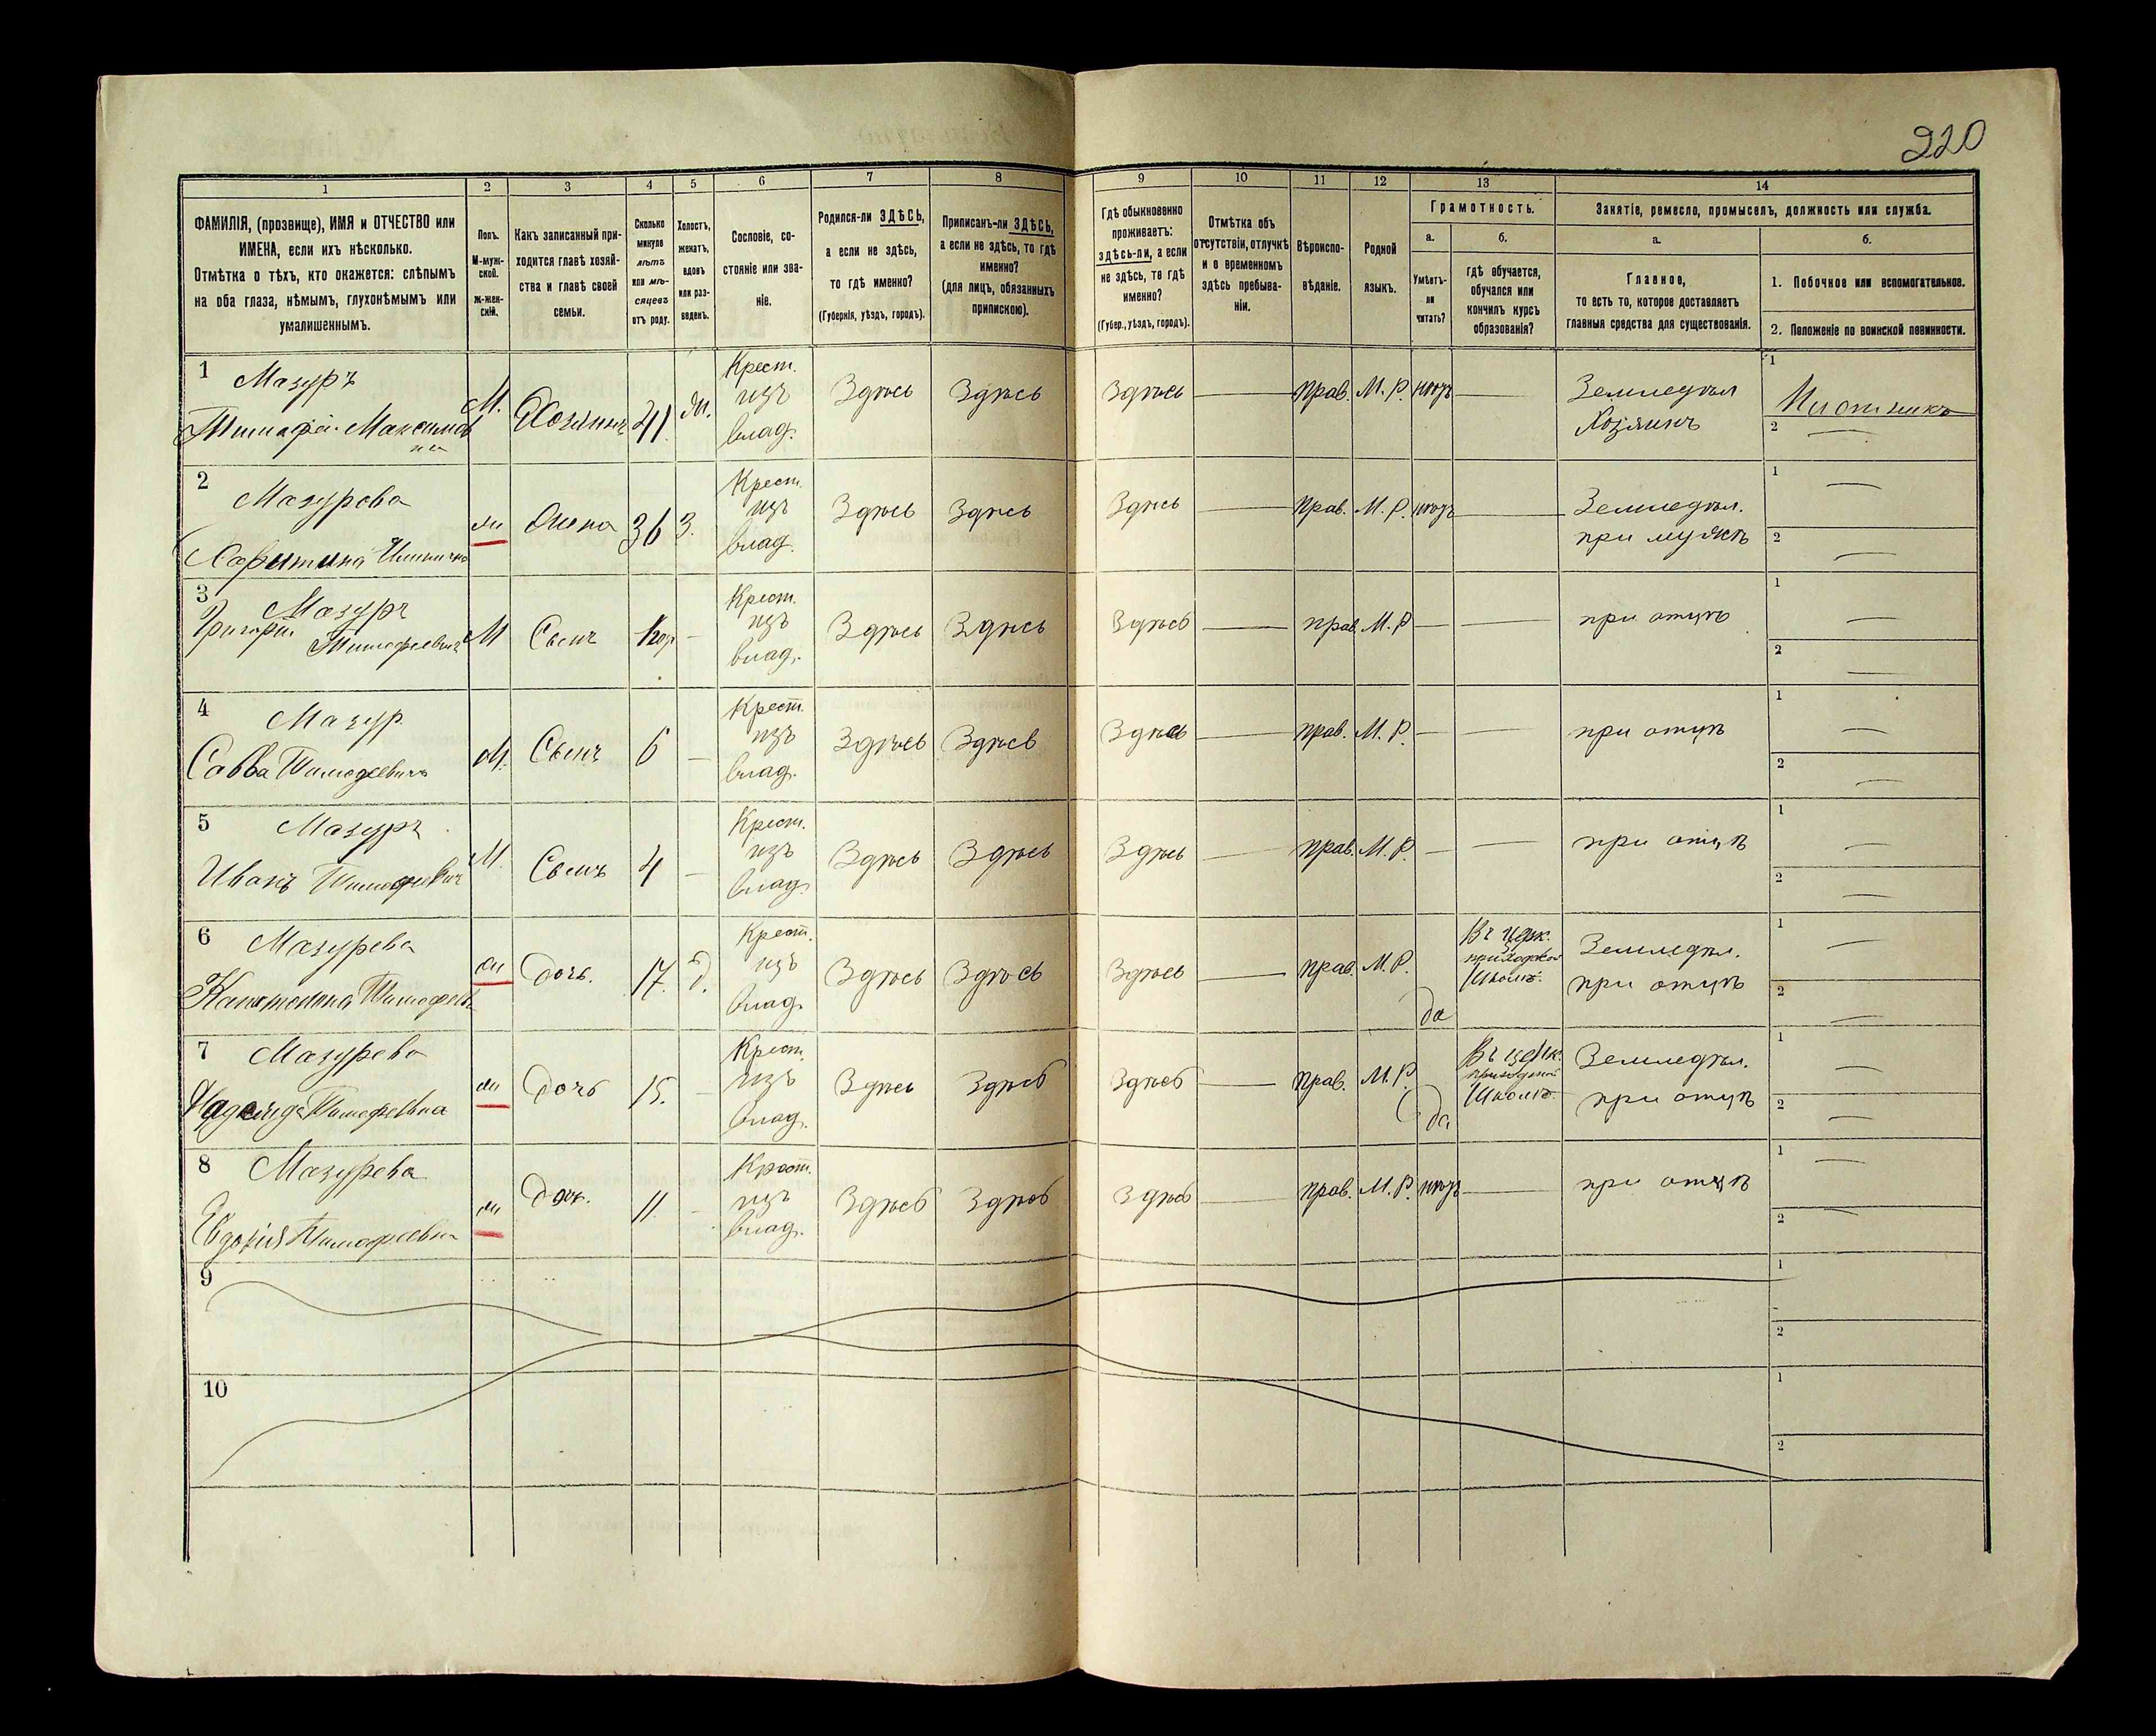 220
1 2 3 4 5 6 7 8 9 10 11 12 13 14
ФАМИЛІЯ, (прозвище), ИМЯ и ОТЧЕСТВО или
ИМЕНА, если ихъ нѣсколько.
Отмѣтка о тѣхъ, кто окажется: слѣпымъ
на оба глаза, нѣмымъ, глухонѣмымъ или
умалишеннымъ.
Полъ.
М-муж-
ской.
Ж-жен-
скій.
Какъ записанный при-
ходится главѣ хозяй-
ства и главѣ своей
семьи.
Сколько
минуло
лѣтъ
или мѣ-
сяцевъ
отъ роду.
Холостъ,
женатъ,
вдовъ
или раз-
веденъ.
Сословіе, со-
стояніе или зва-
ніе.
Родился-ли ЗДѢСЬ,
а если не здѣсь,
то гдѣ именно?
(Губернія, уѣздъ, городъ).
Приписанъ-ли ЗДѢСЬ,
а если не здѣсь, то гдѣ
именно?
(для лицъ, обязанныхъ
припискою).
Гдѣ обыкновенно
проживаетъ:
здѣсь-ли, а если
не здѣсь, то гдѣ
именно?
(Губер., уѣздъ, городъ).
Отмѣтка объ
отсутствіи, отлучкѣ
и о временномъ
здѣсь пребыва-
ніи.
Вѣроиспо-
вѣданіе.
Родной
языкъ.
Грамотность.
а.
Умѣетъ-
ли
читать?
б.
гдѣ обучается,
обучался или
кончилъ курсъ
образованія?
Занятіе, ремесло, промыселъ, должность или служба.
а.
Главное,
то есть то, которое доставляетъ
главныя средства для существованія.
б.
1. Побочное или вспомогательное.
2. Положеніе по воинской повинности.
1 Мазуръ
Тимофей Максимов
М. Хозяинъ 41 ж. Крест. изъ влад. Здѣсь Здѣсь Здѣсь — прав. М.Р. нѣтъ — Земледѣл Хозяинъ
1 Плотникъ
2 —
2 Мазурова
ж Жена 36 З. Крест. изъ влад. Здѣсь Здѣсь Здѣсь — прав. М.Р. нѣтъ — Земледѣл. при мужѣ
1 —
2 —
3 Мазуръ
Григорій Тимофеевичъ
М Сынъ 1 год — Крест. изъ влад. Здѣсь Здѣсь Здѣсь — прав. М.Р — — при отцѣ
1 —
2 —
4 Мазур
Савва Тимофеевичъ
М. Сынъ 6 — Крест. изъ влад. Здѣсь Здѣсь Здѣсь — прав. М.Р. — — при отцѣ
1 —
2 —
5 Мазуръ
Иванъ Тимофеевич
М. Сынъ 4 — Крест. изъ влад. Здѣсь Здѣсь Здѣсь — прав. М.Р. — — при отцѣ
1 —
2 —
6 Мазурева
ж Дочь. 17. д. Крест. изъ влад. Здѣсь Здѣсь Здѣсь — прав. М.Р. да Въ церк. приходской школѣ. Земледѣл. при отцѣ
1 —
2 —
7 Мазурева
Надежда Тимофевна
ж Дочь 15. — Крест. изъ влад. Здѣсь Здѣсь Здѣсь — прав. М.Р. да Въ церк. приходской школѣ. Земледѣл. при отцѣ
1 —
2 —
8 Мазурева
Евдокія Тимофеевна
ж Доч. 11. — Крест. изъ влад. Здѣсь Здѣсь Здѣсь — прав. М.Р. нѣтъ — при отцѣ
1 —
2 —
9
1
2
10
1
2